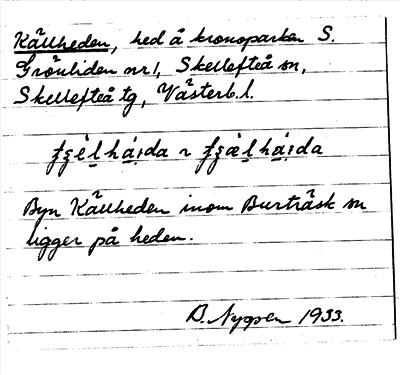 Källheden, hed å kronoparken S.
Grönliden nr 1, Skellefteå sn,
Skellefteå tg, Västerb. l.
Byn Källheden inom Burträsk sn
ligger på heden.
B. Nygren 1933.